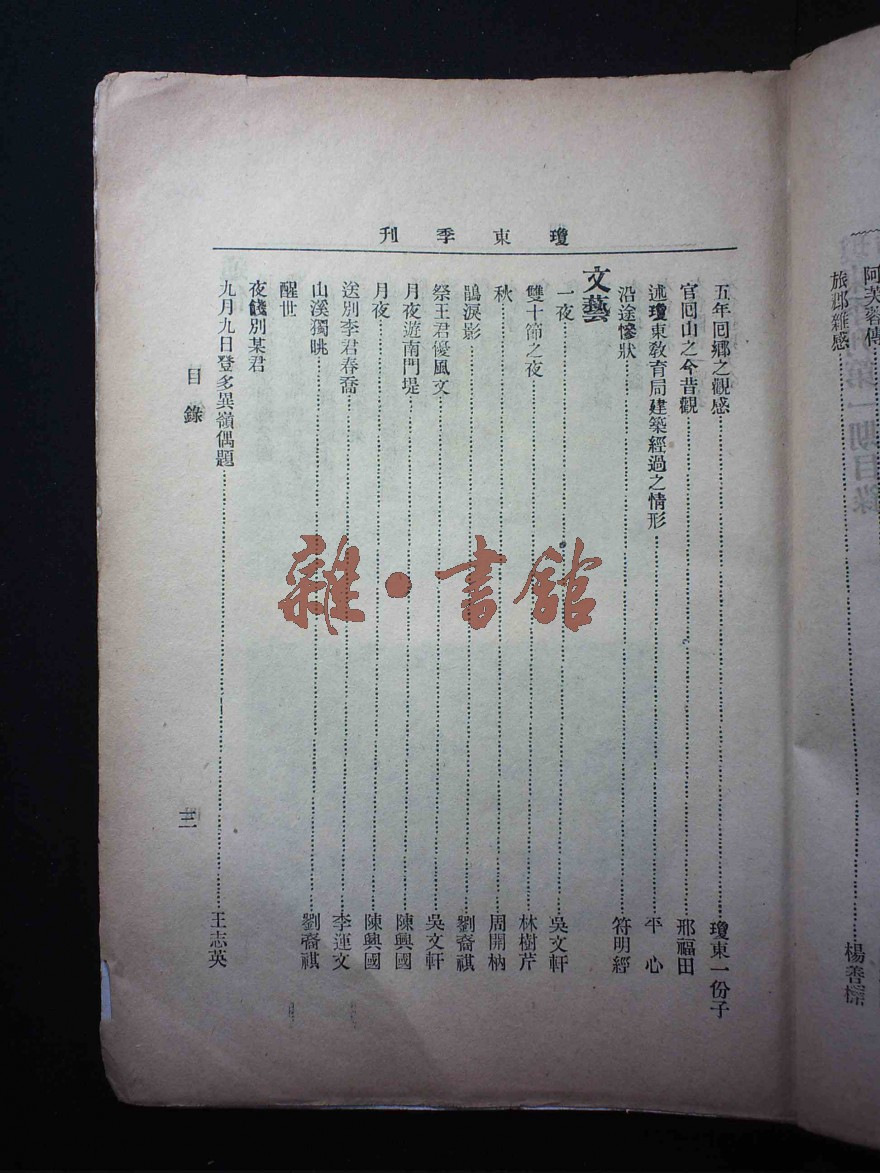 阿芙蓉傳
旅鄉雜感……楊善標
瓊東季刊
五年回鄉之觀感……瓊東一份子
官囘山之今昔觀……邢福田
述瓊東教育局建築經過之情形……平心
沿途慘狀……符明經
文藝
一夜……吳文軒
雙十節之夜……林樹芹
秋……周開枘
鵑淚影……劉裔祺
祭王君優風文……吳文軒
月夜遊南門堤……陳興國
月夜……陳興國
送別李君春喬……李運文
山溪獨眺……劉裔祺
醒世
夜餞別某君
九月九日登多異嶺偶題……王志英
目錄
三
雜·書館